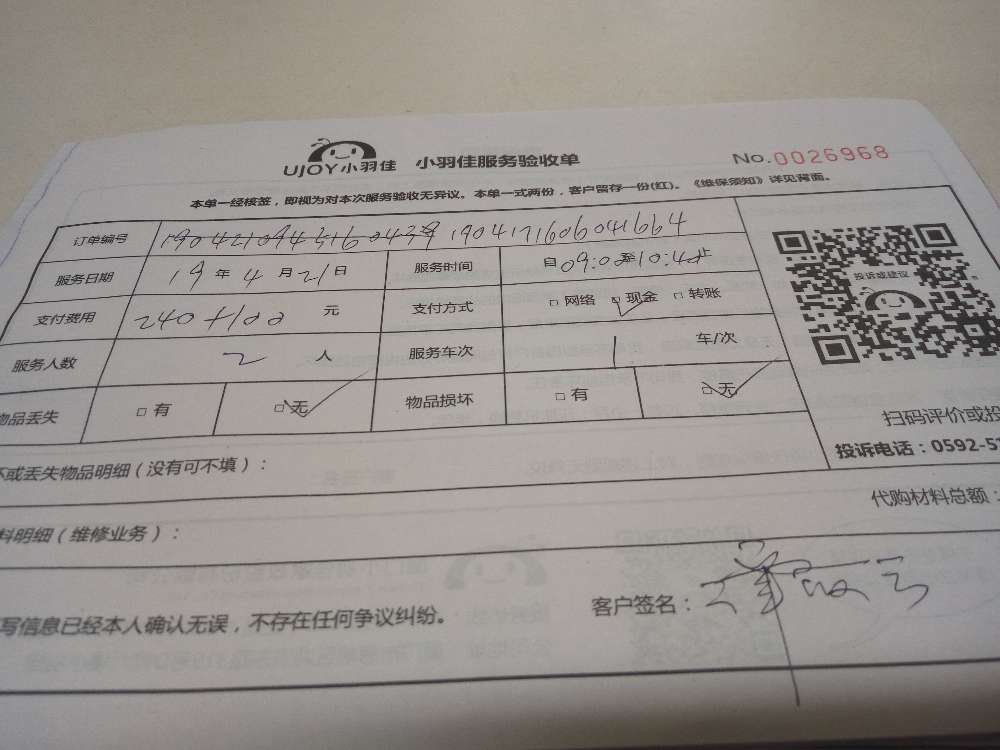 UJOY小羽佳 小羽佳服务验收单 No.0026968
本单一经核签，即视为对本次服务验收无异议。本单一式两份，客户留存一份(红)。《维保须知》详见背面。
订单编号 1904171606041664
服务日期 19年4月21日 服务时间 自09:00至10:40止
支付费用 240+100 元 支付方式 □网络 □现金 □转账
服务人数 2 人 服务车次 1 车/次
物品丢失 □有 □无 物品损坏 □有 □无
投诉或建议
扫码评价或投
投诉电话：0592-5
坏或丢失物品明细（没有可不填）：
代购材料总额：
料明细（维修业务）：
写信息已经本人确认无误，不存在任何争议纠纷。
客户签名：